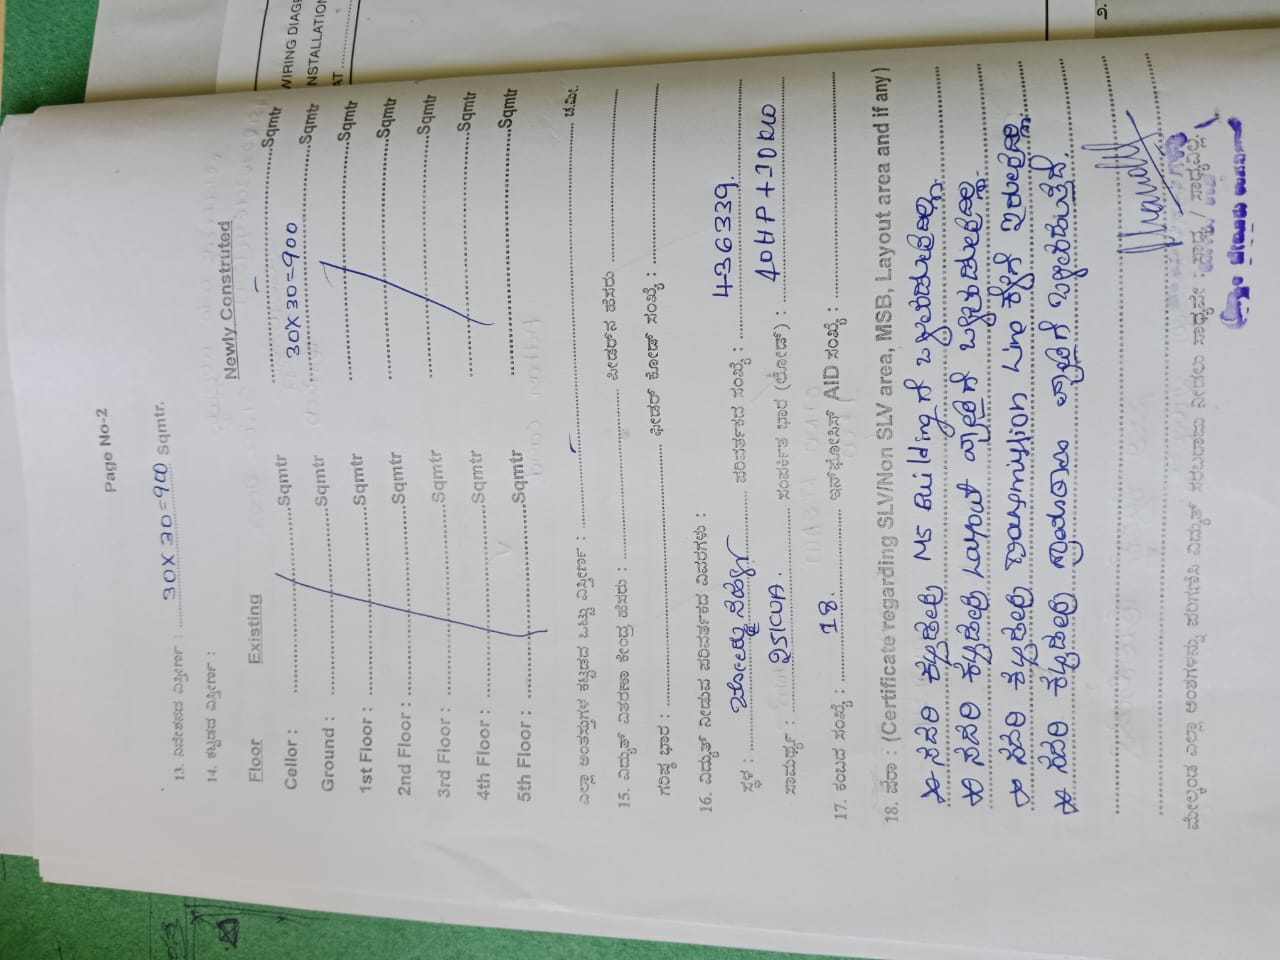 WIRING DIAG
INSTALLATION
AT
Page No-2
13. ನಿವೇಶನದ ವಿಸ್ತೀರ್ಣ : 30 X 30 = 900 Sqmtr.
14. ಕಟ್ಟಡದ ವಿಸ್ತೀರ್ಣ :
Floor Existing Newly Construted
Cellor : Sqmtr – Sqmtr
Ground : Sqmtr 30 X 30 = 900 Sqmtr
1st Floor : Sqmtr Sqmtr
2nd Floor : Sqmtr Sqmtr
3rd Floor : Sqmtr Sqmtr
4th Floor : Sqmtr Sqmtr
5th Floor : Sqmtr Sqmtr
ಎಲ್ಲಾ ಅಂತಸ್ತುಗಳ ಕಟ್ಟಡದ ಒಟ್ಟು ವಿಸ್ತೀರ್ಣ : ಚ.ಮೀ.
15. ವಿದ್ಯುತ್ ವಿತರಣಾ ಕೇಂದ್ರ ಹೆಸರು : ಫೀಡರ್‌ನ ಹೆಸರು
ಗರಿಷ್ಠ ಭಾರ : ಫೀಡರ್ ಕೋಡ್ ಸಂಖ್ಯೆ :
16. ವಿದ್ಯುತ್ ನೀಡುವ ಪರಿವರ್ತಕದ ವಿವರಗಳು :
ಸ್ಥಳ : ಪರಿವರ್ತಕದ ಸಂಖ್ಯೆ : 436339.
ಸಾಮರ್ಥ್ಯ : 25KVA. ಸಂಪರ್ಕಿತ ಭಾರ (ಲೋಡ್) : 40HP +
17. ಕಂಬದ ಸಂಖ್ಯೆ : 18. ಇನ್‌ಫೋಸಿಸ್ AID ಸಂಖ್ಯೆ :
18. ಷೆರಾ : (Certificate regarding SLV/Non SLV area, MSB, Layout area and if any)
* ಸದರಿ ಕಟ್ಟಡವು MS Building ಗೆ ಒಳಪಡುವುದಿಲ್ಲ.
* ಸದರಿ ಕಟ್ಟಡವು Layout ವ್ಯಾಪ್ತಿಗೆ ಒಳಪಡುವುದಿಲ್ಲ.
* ಸದರಿ ಕಟ್ಟಡವು Transmission Line ಕೆಳಗೆ ಇರುವುದಿಲ್ಲ.
* ಸದರಿ ಕಟ್ಟಡವು ಗ್ರಾಮಠಾಣಾ ವ್ಯಾಪ್ತಿಗೆ ಒಳಪಡುತ್ತದೆ.
ಮೇಲ್ಕಂಡ ಎಲ್ಲಾ ಅಂಶಗಳನ್ನು ಪರಿಗಣಿಸಿ ವಿದ್ಯುತ್ ಸರಬರಾಜು ನೀಡಲು ಸಾಧ್ಯವೇ : ಸಾಧ್ಯ / ಸಾಧ್ಯವಿಲ್ಲ.